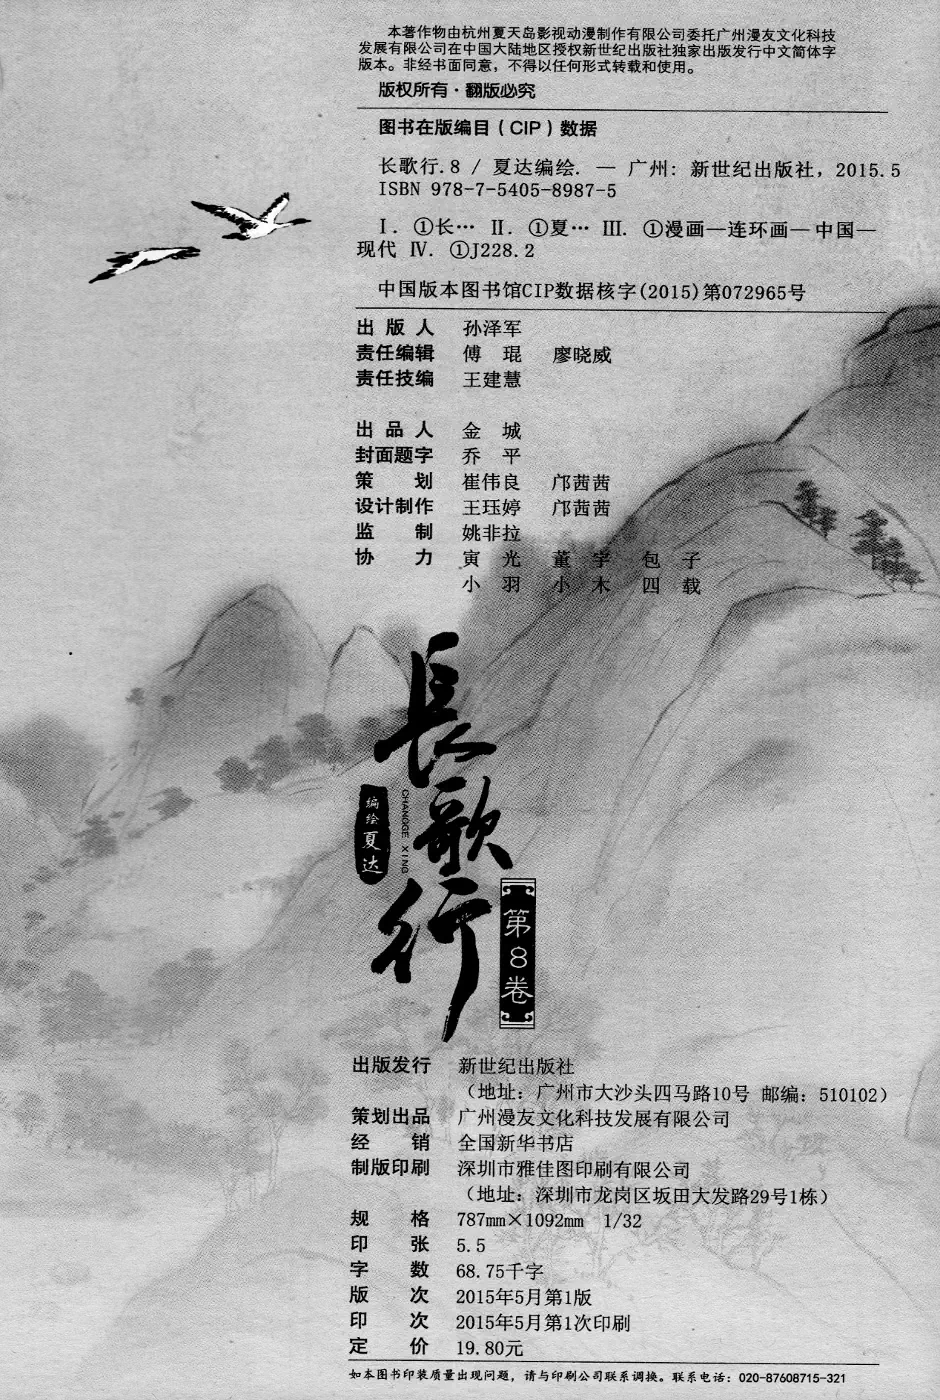 本著作物由杭州夏天岛影视动漫制作有限公司委托广州漫友文化科技
发展有限公司在中国大陆地区授权新世纪出版社独家出版发行中文简体字
版本。非经书面同意，不得以任何形式转载和使用。
版权所有·翻版必究
图书在版编目（CIP）数据
长歌行.8 / 夏达编绘. — 广州: 新世纪出版社，2015.5
ISBN 978-7-5405-8987-5
Ⅰ. ①长… Ⅱ. ①夏… Ⅲ. ①漫画—连环画—中国—
现代 Ⅳ. ①J228.2
中国版本图书馆CIP数据核字(2015)第072965号
出版人 孙泽军
责任编辑 傅琨 廖晓威
责任技编 王建慧
出品人 金城
封面题字 乔平
策划 崔伟良 邝茜茜
设计制作 王珏婷 邝茜茜
监制 姚非拉
协力 寅光 董宇 包子
小羽 小木 四载
長歌行
CHANGGE XING
编绘夏达
第8卷
出版发行 新世纪出版社
（地址：广州市大沙头四马路10号 邮编：510102）
策划出品 广州漫友文化科技发展有限公司
经销 全国新华书店
制版印刷 深圳市雅佳图印刷有限公司
（地址：深圳市龙岗区坂田大发路29号1栋）
规格 787mm×1092mm 1/32
印张 5.5
字数 68.75千字
版次 2015年5月第1版
印次 2015年5月第1次印刷
定价 19.80元
如本图书印装质量出现问题，请与印刷公司联系调换。联系电话：020-87608715-321